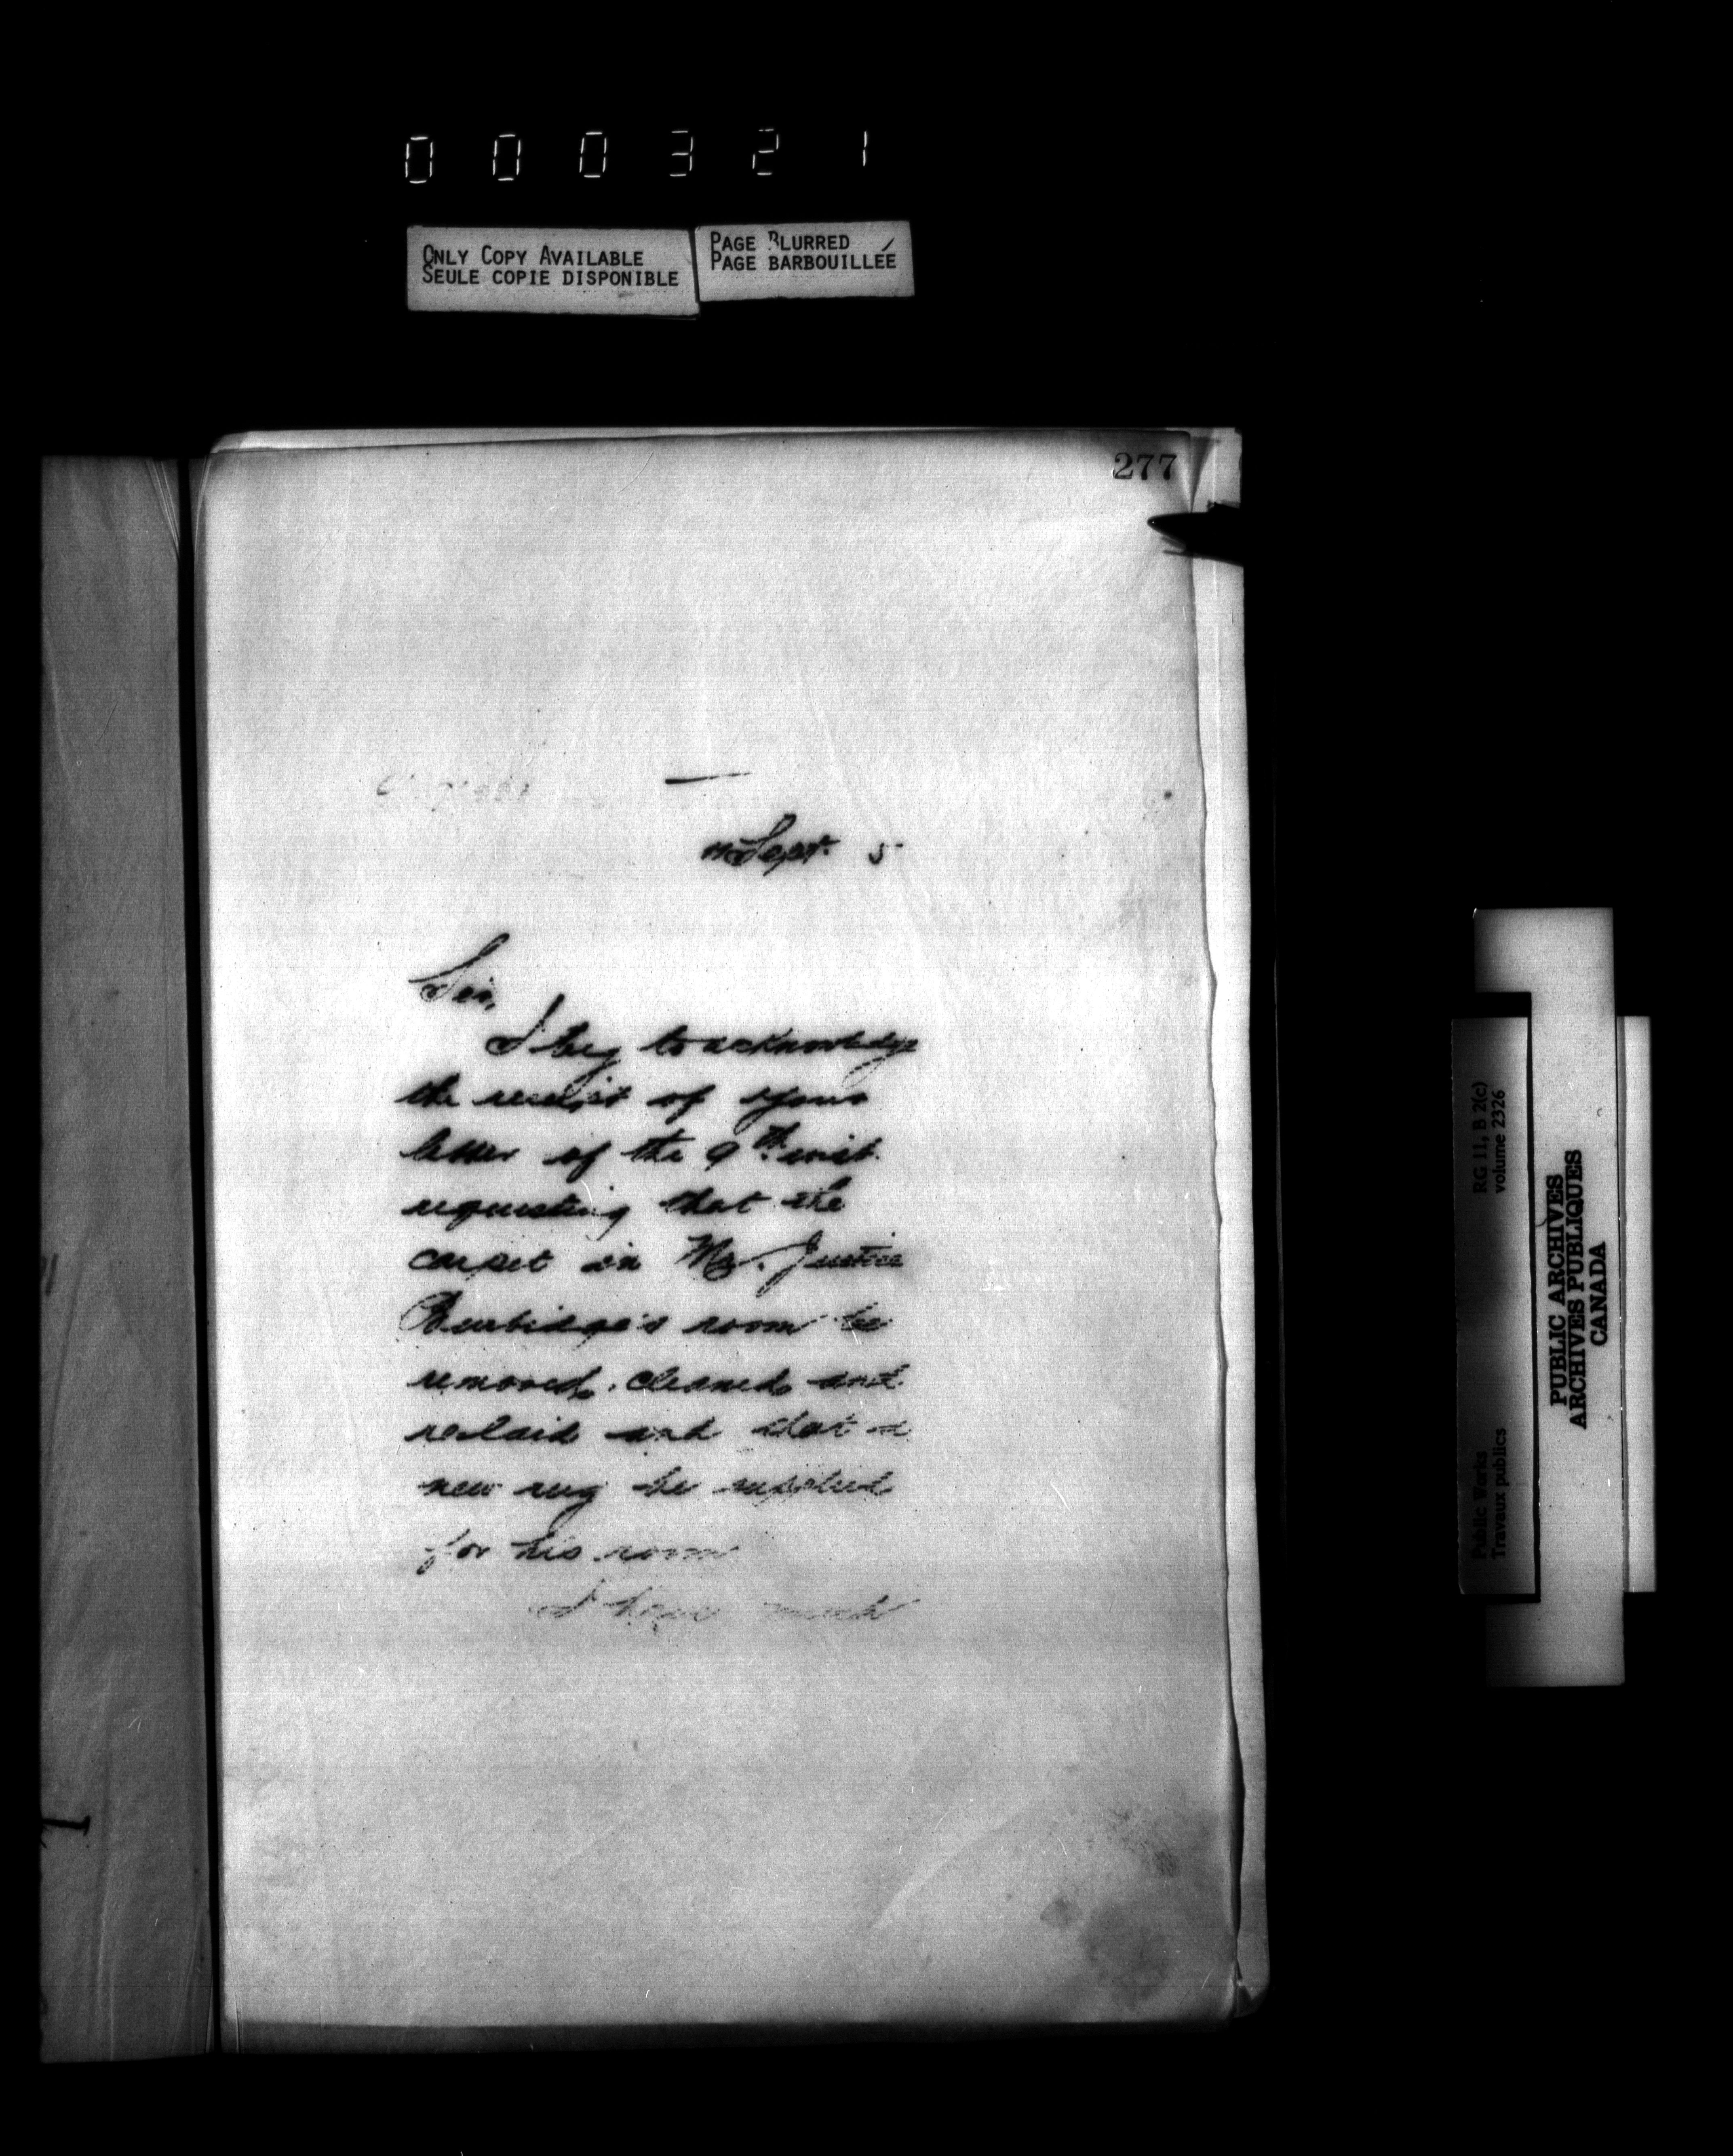 000321
ONLY COPY AVAILABLE
SEULE COPIE DISPONIBLE
PAGE BLURRED
PAGE BARBOUILLÉE
277
Sept. 5
Sir,
I beg to acknowledge
the receipt of your
letter of the 9th. inst.
requesting that the
carpet in Mr. Justice
Burbidge's room be
removed, cleaned and
relaid and that a
new rug be supplied
for his room
I have much
RG 11, B 2(c)
volume 2326
Public Works
Travaux publics
PUBLIC ARCHIVES
ARCHIVES PUBLIQUES
CANADA